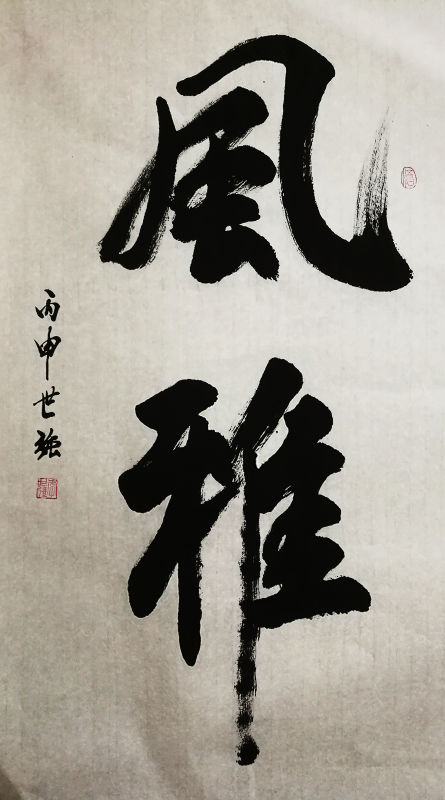 風雅
丙申世強